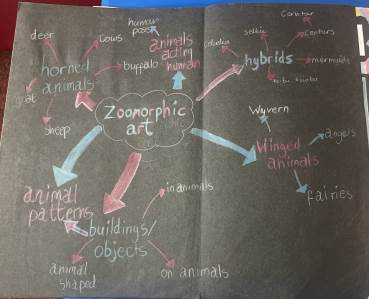 human
poses
animals
acting
human
deer
cows
horned
animals
buffalo
goat
sheep
Zoomorphic
art
selkie
hybrids
mermaids
Wyvern
Winged
animals
angels
fairies
animal
patterns
buildings/
objects
in animals
on animals
animal
shaped